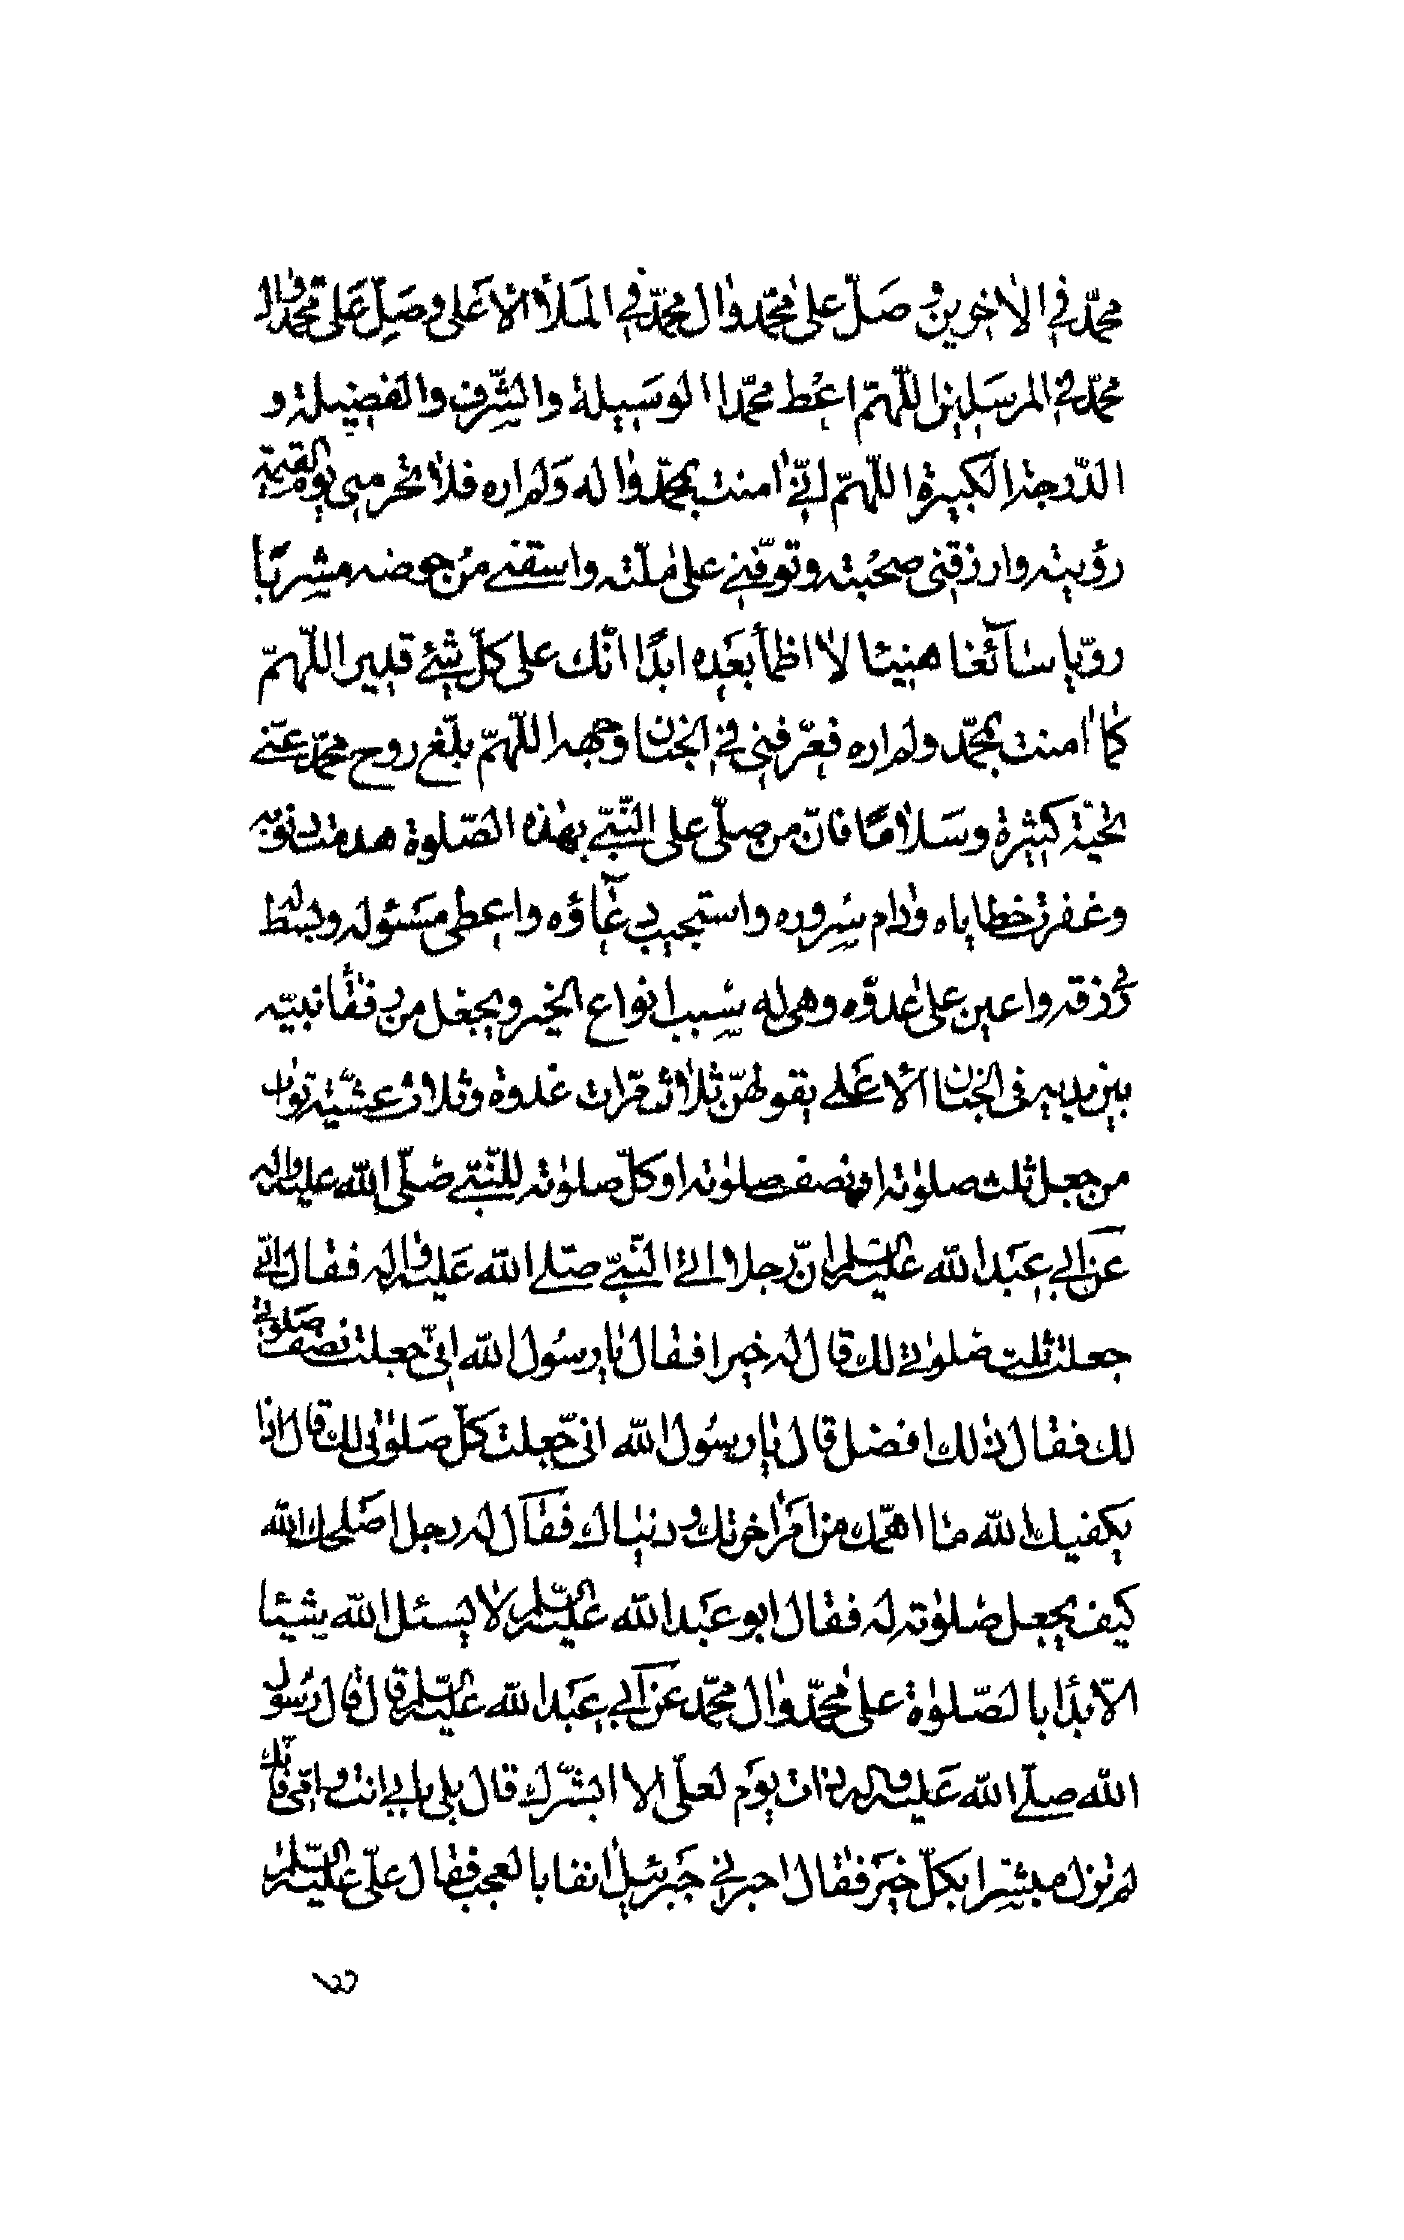 محمّد في الاخرين و صَلّ على محمّد وال محمّد في المَلاٴ الاعَلى و صَلِّ عَلى محمّد وال
محمّد في المرسَلين اللّهمّ اعْط محمّدا الوسَيلة والشّرف والفضيلة و
الدّرجة الكبيرة اللّهمّ انّي امنت بمحمّد واله وَلم اره فلا تحرمني يوم القيمة
رؤيته وارزقني صحُبته وتوفّني على ملّته واسقني من حوضه مشربًا
رويّا سآئغا هنيئا لا اظمأ بعَده ابدًا انّك على كلّ شئ قدير اللّهمّ
كما امنت بمحمّد ولم اره فعرّفني في الجنان وجهه اللّهمّ بلّغ روح محمّد عنّي
تحيّة كثيرة وسَلامًا فانّ من صلّى على النّبيّ بهذه الصّلوة هدمت ذنوبه
وغفرت خطاياه ودام سروره واستجيب دعآؤه واعطى مسَئوله وبسَط له
في رزقه واعين على عدوّه وهى له سبب انواع الخير ويجعل من رفقأ نبيّه
بين يديه في الجنان الاعَلى يقولهنّ ثلاث مرّات غدوة وثلاث عشيّة ثواب
من جعل ثلث صلوته او نصف صلوته او كلّ صلوته للنّبيّ صلّى الله عليه واله
عن ابي عبَد الله عليه السّلم انّ رجلا اتى النّبيّ صلّى الله عَليه واله فقال انّي
جعلت ثلث صلوتي لك قال له خيرا فقال يا رسُول الله انّي جعلت نصف صَلوتي
لك فقال ذلك افضل قال يا رسُول الله انّي جعلت كلّ صَلوتي لك قال اذا
يكفيك الله ما اهمّك من امَر اخرتك و دنياك فقَال له رجل اصَلحك الله
كيف يجعل صلوته له فقال ابو عبَد الله عليه السّلم لا يسئل الله شيئا
الاّ بدٔا بالصّلوة على محمّد وال محمّد عن ابي عبَد الله عليه السّلم قال قال رسُول
الله صلّى الله عَليه واله ذات يوَم لعلّى الا ابشّرك قال بلى بابي انت وامّي فانّك
لم تزل مبشّرا بكلّ خيَر فقال اخبرني جَبرئيل انفا بالعجب فقال علّى عليه السّلم